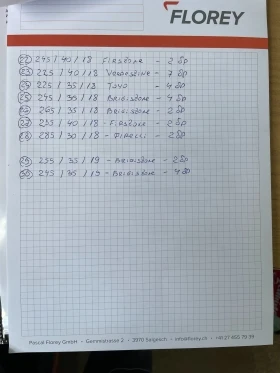 FLOREY
22 245 / 40 / 18 FIRSTONE - 2 SD
23 225 / 40 / 18 - 3 SD
24 225 / 35 / 18 TOYO - 4 SD
25 245 / 35 / 18 BRIGISTONE - 4 SD
26 265 / 35 / 18 BRIGISTONE - 2 SD
27 235 / 40 / 18 - FIRSTONE - 2 SD
28 285 / 30 / 18 - PIRELLI - 2 SD
29 255 / 35 / 19 - BRIGISTONE - 2 SD
30 245 / 35 / 19 - BRIGISTONE - 4 SD
Pascal Florey GmbH • Gemmistrasse 2 • 3970 Salgesch • info@florey.ch • +41 27 455 79 39